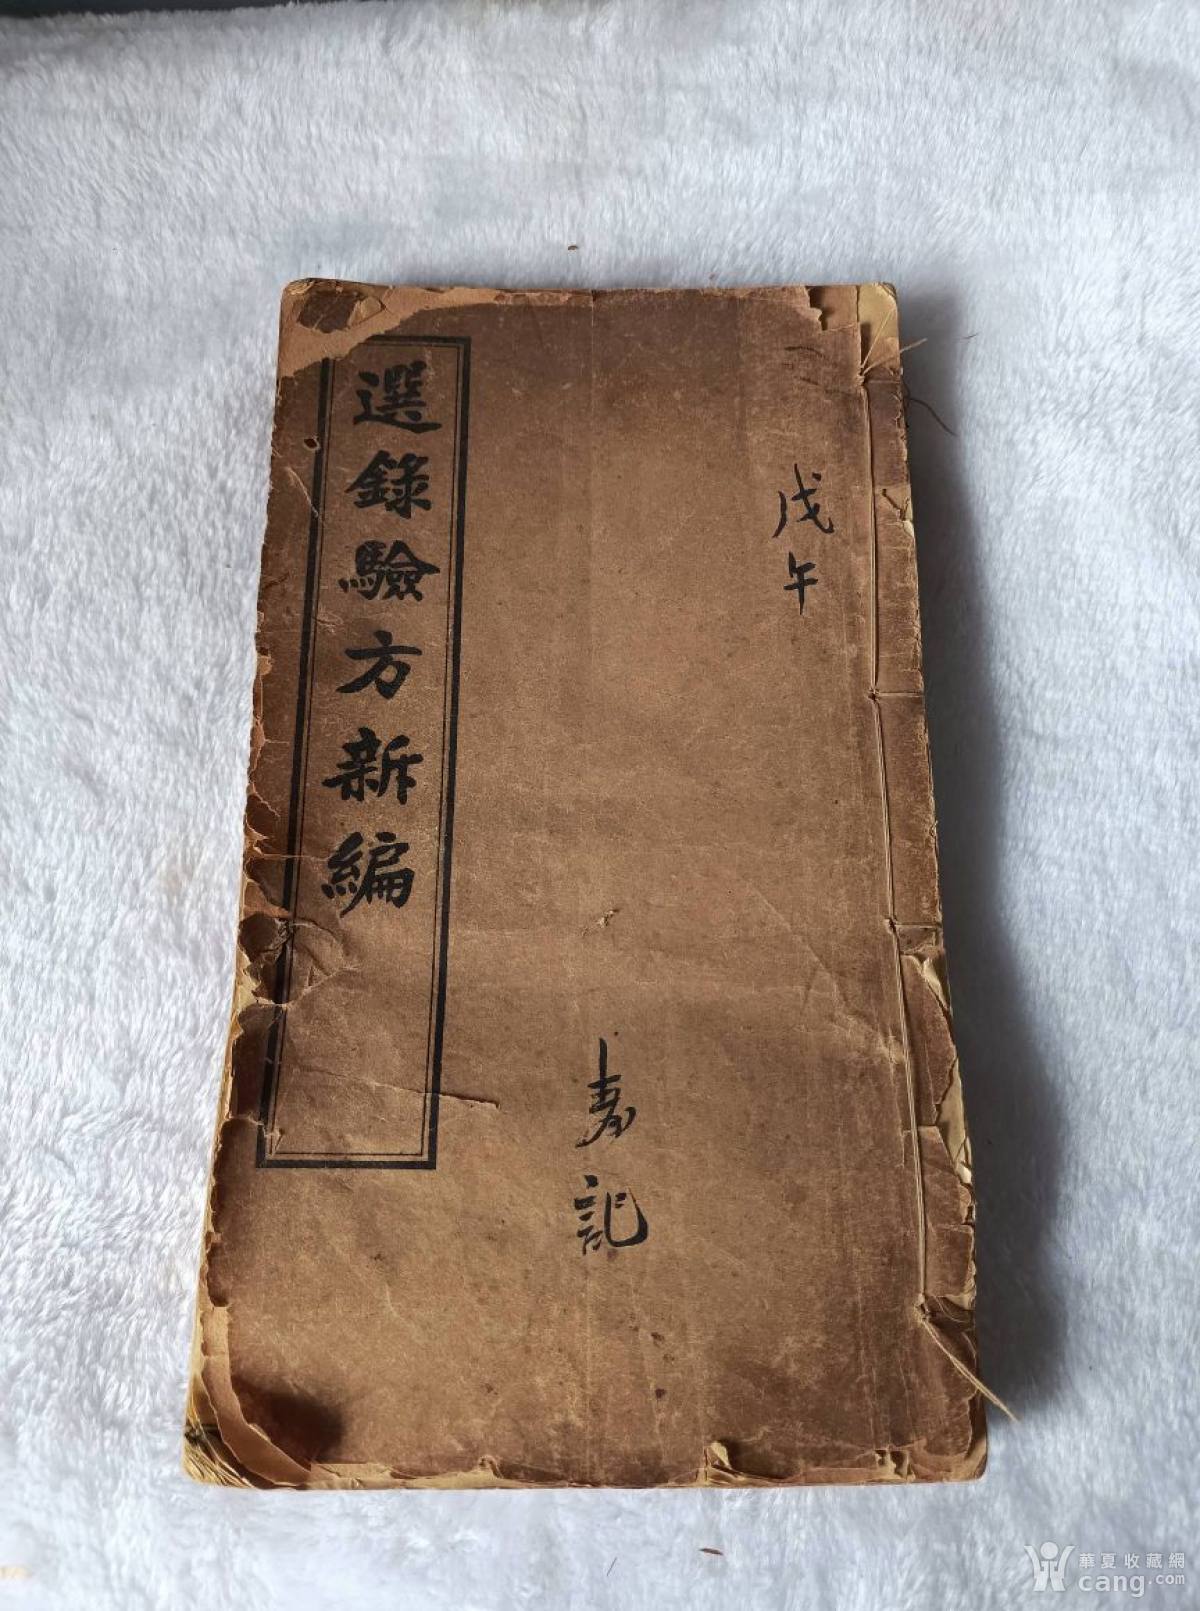 戊午
記
選錄驗方新編
華夏收藏網
cang.com